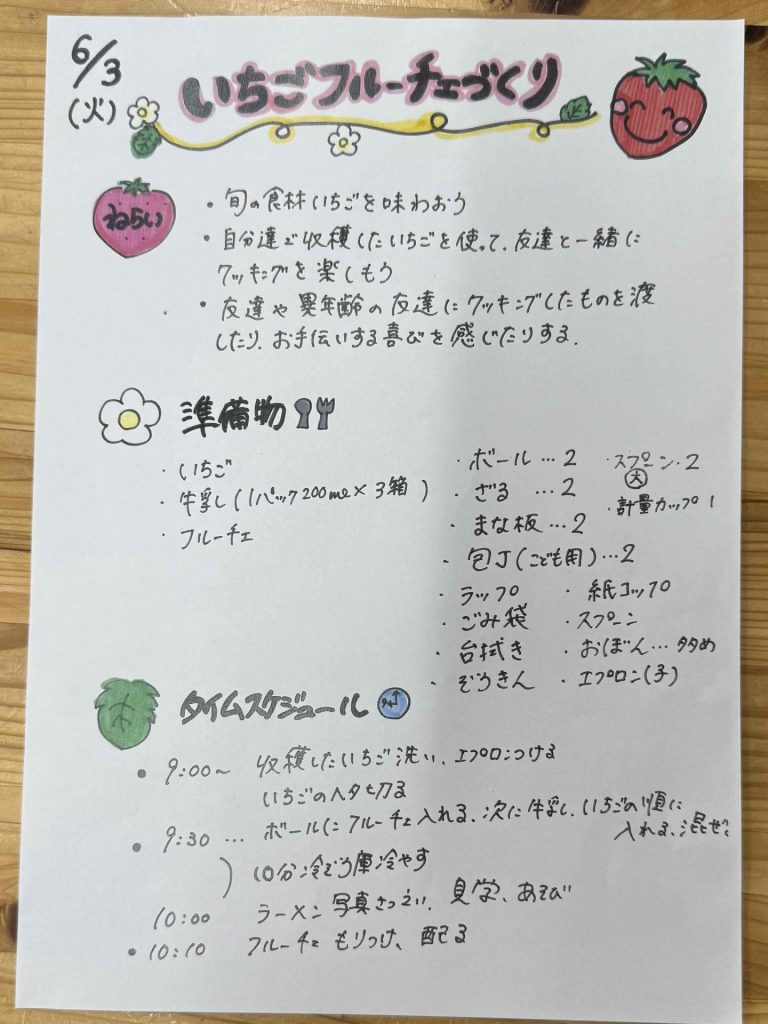 6/3
(火)
いちごフルーチェづくり
ねらい
・旬の食材いちごを味わおう
・自分達で収穫したいちごを使って、友達と一緒に
クッキングを楽しもう
・友達や異年齢の友達にクッキングしたものを渡
したり、お手伝いする喜びを感じたりする.
準備物
・いちご
・牛乳(1パック200ml×3箱)
・フルーチェ
・ボール…2
・ざる …2
・まな板…2
・包丁(こども用)…2
・ラップ
・ごみ袋
・台拭き
・ぞうきん
・スプーン・2
大
・計量カップ1
・紙コップ
・スプーン
・おぼん…多め
・エプロン(子)
タイムスケジュール
・9:00~ 収穫したいちご洗い、エプロンつける
いちごのヘタ切る
・9:30 … ボールにフルーチェ入れる、次に牛乳、いちごの順に
入れる、混ぜる
10分冷ぞう庫冷やす
10:00 ラーメン 写真さつえい、見学、あそび
・10:10 フルーチェ もりつけ、配る